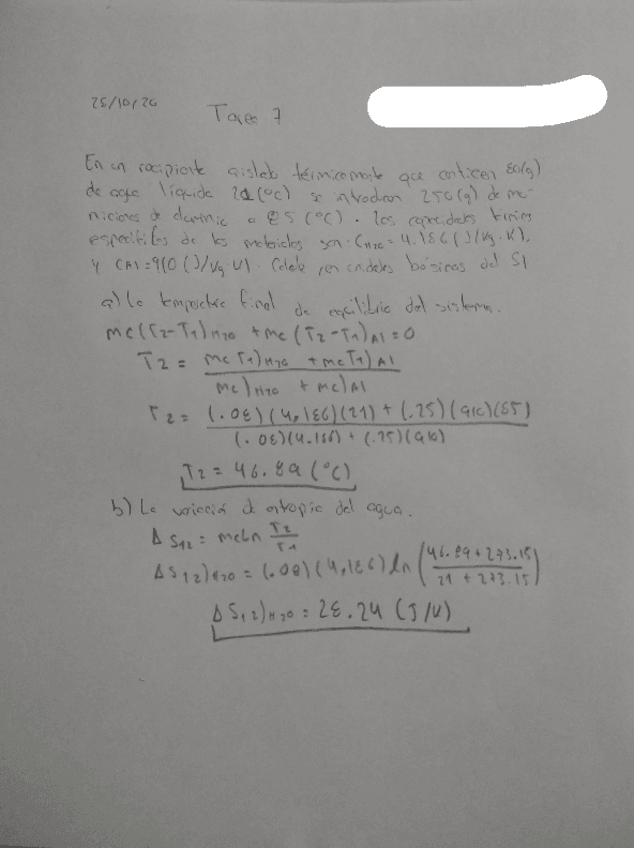 25/10/20
Tarea 7
En un recipiente aislado térmicamente que contienen 80(g)
de agua líquida 21 (°C) se introducen 250(g) de mu-
niciones de aluminio a 85 (°C). Las capacidades térmicas
específicas de los materiales son: CH2O = 4.186 (J/kg·K),
y CAl = 910 (J/kg·K). Calcule, en unidades básicas del SI
a) La temperatura final de equilibrio del sistema.
mc(T2-T1)H2O + mc(T2-T1)Al = 0
T2 = mcT1)H2O + mcT1)Al
mc)H2O + mc)Al
T2 = (.08)(4,186)(21) + (.25)(910)(85)
(.08)(4.186) + (.25)(910)
T2 = 46.89 (°C)
b) La variación de entropía del agua.
ΔS12 = mcLn T2
T1
ΔS12)H2O = (.08)(4,186) ln (46.89+273.15)
21 + 273.15
ΔS12)H2O = 28.24 (J/K)